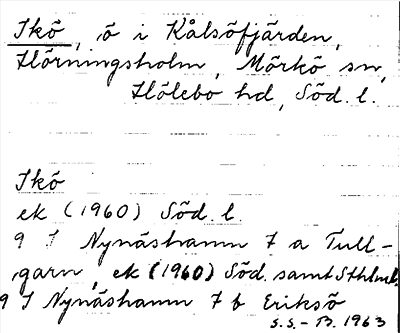 Ikö, ö i Kålsöfjärden,
Hörningsholm, Mörkö sn,
Hölebo hd, Söd. l.
Ikö
ek (1960) Söd. l.
9 I Nynäshamn 7 a Tull-
garn, ek (1960) Söd. samt Sthlms l.
9 I Nynäshamn 7 b Eriksö
S.S.-B. 1963